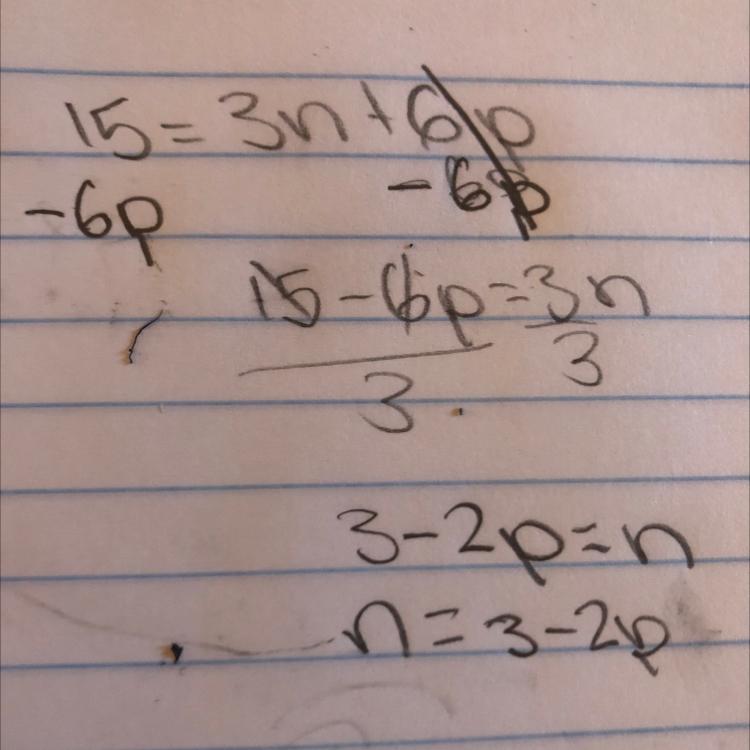 15 = 3n + 6p
-6p - 6p
15 - 6p = 3n
3 3
3 - 2p = n
n = 3 - 2p